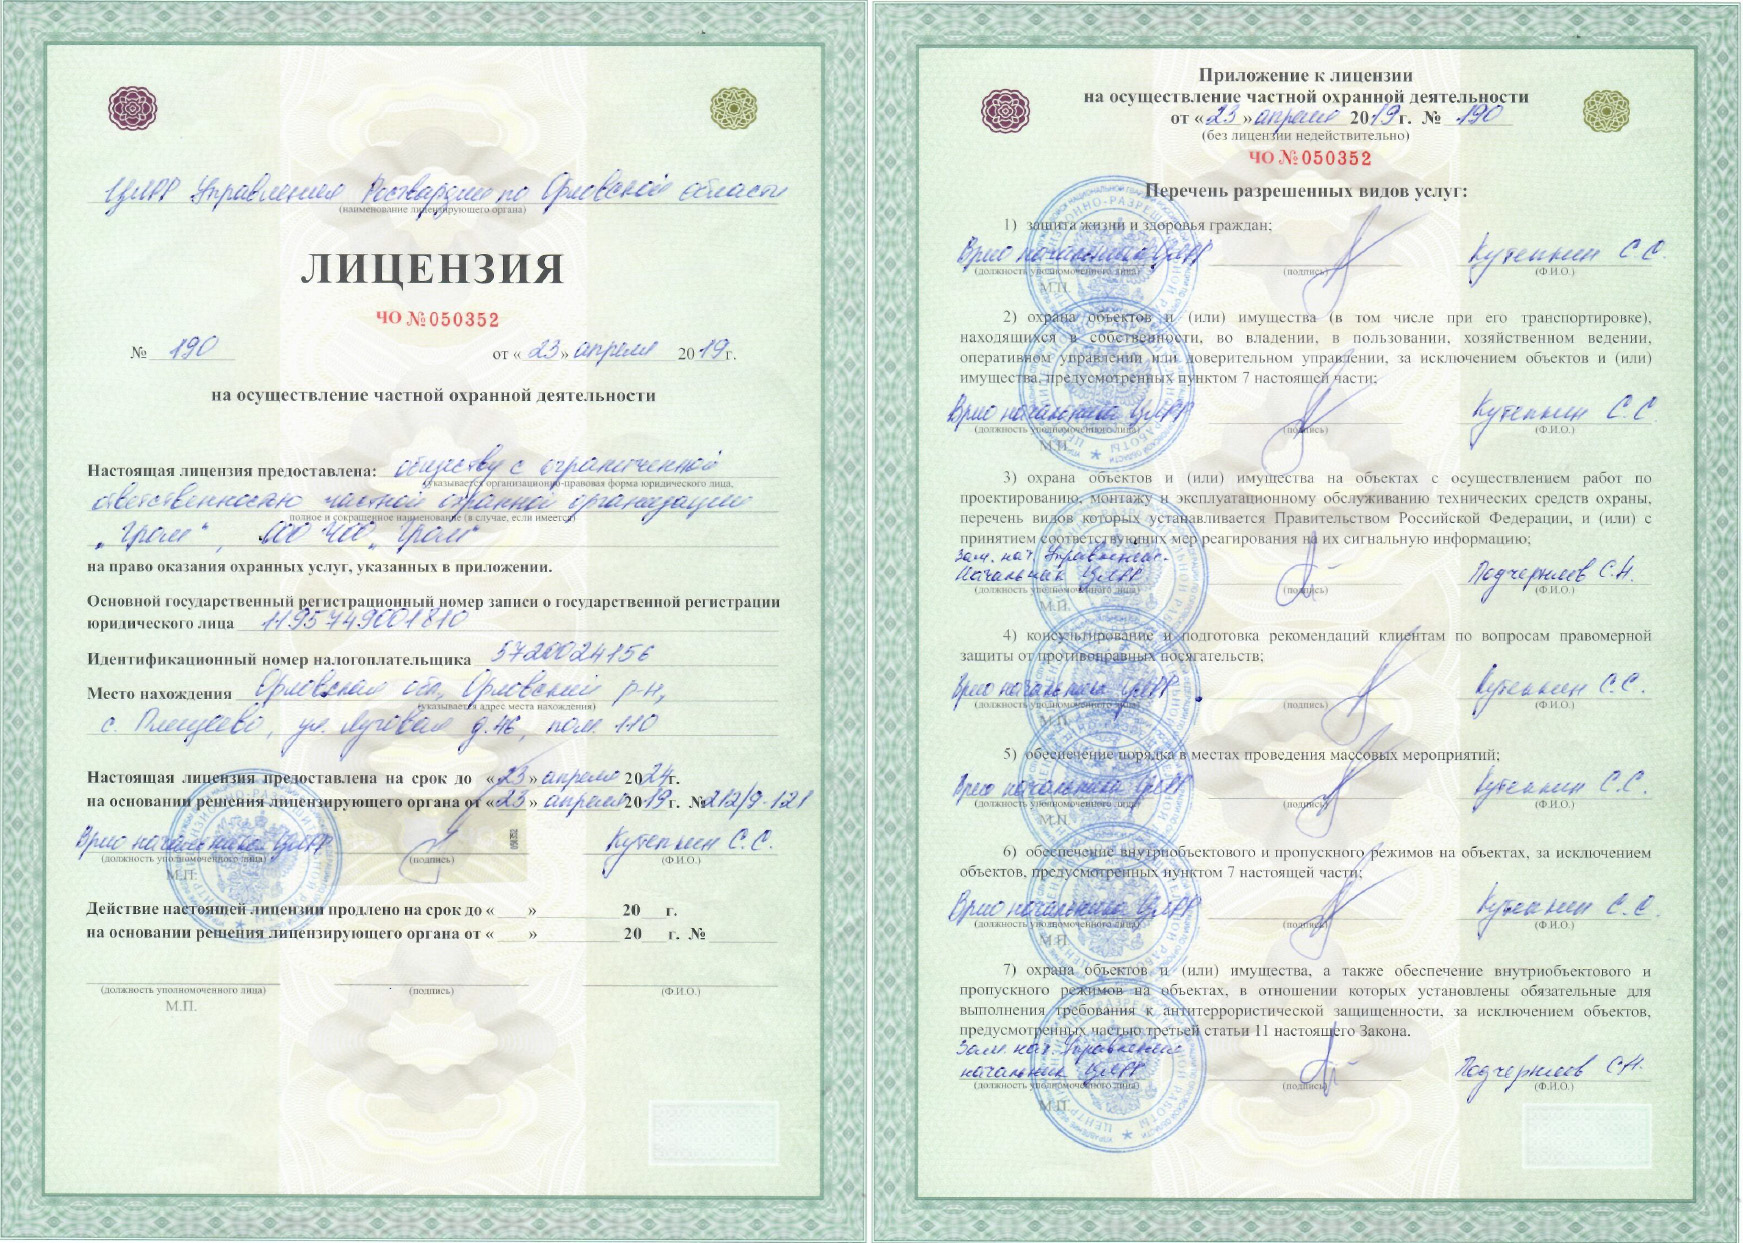 ЦЛРР Управления Росгвардии по Орловской области
(наименование лицензирующего органа)
ЛИЦЕНЗИЯ
ЧО №050352
№ 190 от «23» апреля 2019г.
на осуществление частной охранной деятельности
Настоящая лицензия предоставлена: обществу с ограниченной
(указывается организационно-правовая форма юридического лица,
ответственностью частной охранной организации
полное и сокращенное наименование (в случае, если имеется)
„Гром“, ООО ЧОО „Гром“
на право оказания охранных услуг, указанных в приложении.
Основной государственный регистрационный номер записи о государственной регистрации
юридического лица 1195749001810
Идентификационный номер налогоплательщика 5720024156
Место нахождения Орловская обл, Орловский р-н,
(указывается адрес места нахождения)
с. Плещеево, ул. Луговая д.46, пом. 110
Настоящая лицензия предоставлена на срок до «23» апреля 2024г.
на основании решения лицензирующего органа от «23» апреля 2019г. №212/9-121
Врио начальника ЦЛРР Кутепкин С.С.
(должность уполномоченного лица) (подпись) (Ф.И.О.)
М.П.
Действие настоящей лицензии продлено на срок до « » 20 г.
на основании решения лицензирующего органа от « » 20 г. №
(должность уполномоченного лица) (подпись) (Ф.И.О.)
М.П.
Приложение к лицензии
на осуществление частной охранной деятельности
от «23» апреля 2019г. № 190
(без лицензии недействительно)
ЧО №050352
Перечень разрешенных видов услуг:
1) защита жизни и здоровья граждан;
Врио начальника ЦЛРР Кутепкин С.С.
(должность уполномоченного лица) (подпись) (Ф.И.О.)
М.П.
2) охрана объектов и (или) имущества (в том числе при его транспортировке),
находящихся в собственности, во владении, в пользовании, хозяйственном ведении,
оперативном управлении или доверительном управлении, за исключением объектов и (или)
имущества, предусмотренных пунктом 7 настоящей части;
Врио начальника ЦЛРР Кутепкин С.С
(должность уполномоченного лица) (подпись) (Ф.И.О.)
М.П.
3) охрана объектов и (или) имущества на объектах с осуществлением работ по
проектированию, монтажу и эксплуатационному обслуживанию технических средств охраны,
перечень видов которых устанавливается Правительством Российской Федерации, и (или) с
принятием соответствующих мер реагирования на их сигнальную информацию;
Зам. нач. Управления-
Начальник ЦЛРР Подчерняев С.Н.
(должность уполномоченного лица) (подпись) (Ф.И.О.)
М.П.
4) консультирование и подготовка рекомендаций клиентам по вопросам правомерной
защиты от противоправных посягательств;
Врио начальника ЦЛРР Кутепкин С.С.
(должность уполномоченного лица) (подпись) (Ф.И.О.)
М.П.
5) обеспечение порядка в местах проведения массовых мероприятий;
Врио начальника ЦЛРР Кутепкин С.С.
(должность уполномоченного лица) (подпись) (Ф.И.О.)
М.П.
6) обеспечение внутриобъектового и пропускного режимов на объектах, за исключением
объектов, предусмотренных пунктом 7 настоящей части;
Врио начальника ЦЛРР Кутепкин С.С.
(должность уполномоченного лица) (подпись) (Ф.И.О.)
М.П.
7) охрана объектов и (или) имущества, а также обеспечение внутриобъектового и
пропускного режимов на объектах, в отношении которых установлены обязательные для
выполнения требования к антитеррористической защищенности, за исключением объектов,
предусмотренных частью третьей статьи 11 настоящего Закона.
Зам. нач. Управления
начальник ЦЛРР Подчерняев С.Н.
(должность уполномоченного лица) (подпись) (Ф.И.О.)
М.П.